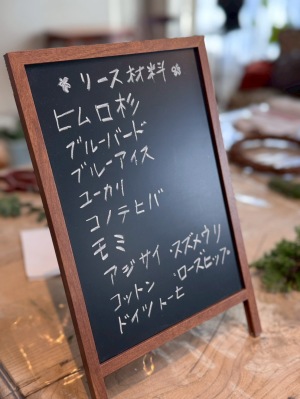 リース材料
ヒムロ杉
ブルーバード
ブルーアイス
ユーカリ
コノテヒバ
モミ
アジサイ スズメウリ
コットン ローズヒップ
ドイツトーヒ